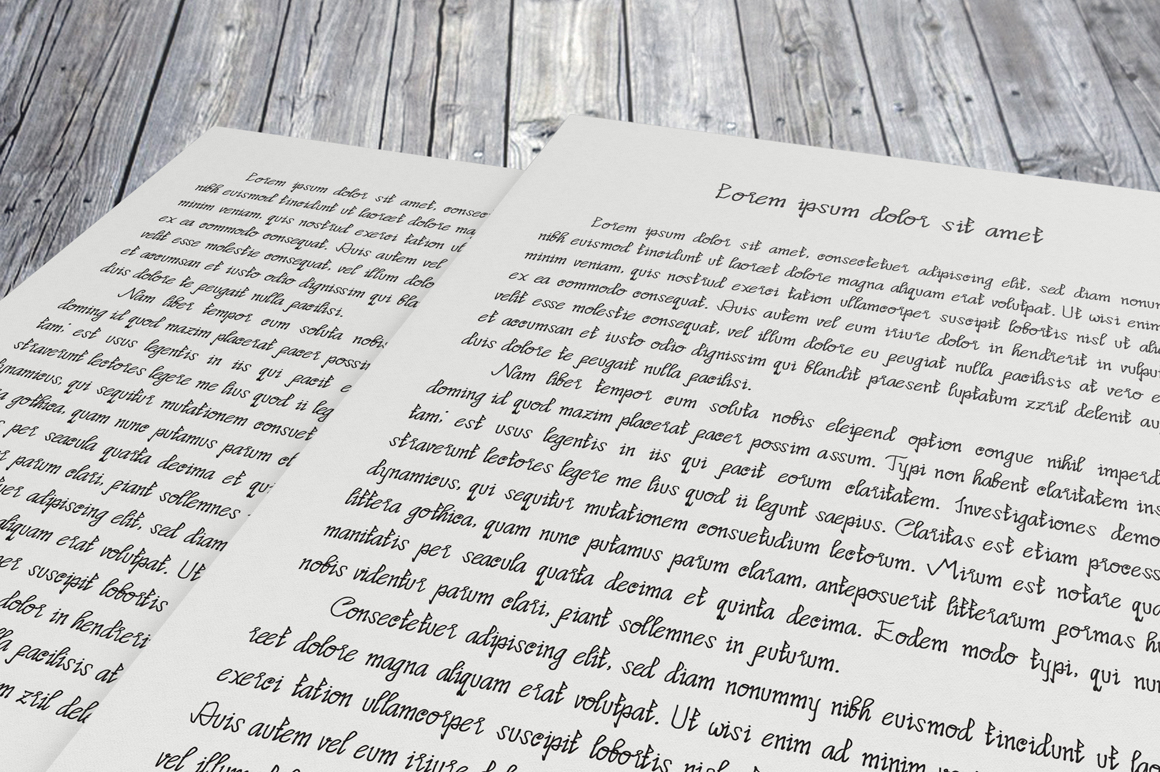 Lorem ipsum dolor sit amet, consec
nibh euismod tincidunt ut laoreet dolore ma
minim veniam, quis nostrud exerci tation ul
ex ea commodo consequat. Duis autem vel
velit esse molestie consequat, vel illum dolo
et accumsan et iusto odio dignissim qui bla
duis dolore te feugait nulla facilisi.
Nam liber tempor cum soluta nobis
doming id quod mazim placerat facer possim
tam; est usus legentis in iis qui facit e
straverunt lectores legere me lius quod ii leg
dynamicus, qui sequitur mutationem consuet
a gothica, quam nunc putamus parum cl
s per seacula quarta decima et qu
r parum clari, fiant sollemnes
uer adipiscing elit, sed diam
aliquam erat volutpat. Ut
per suscipit lobortis
dolor in hendreri
lla facilisis at
m zzril dele
Lorem ipsum dolor sit amet
Lorem ipsum dolor sit amet, consectetuer adipiscing elit, sed diam nonum
nibh euismod tincidunt ut laoreet dolore magna aliquam erat volutpat. Ut wisi enim
minim veniam, quis nostrud exerci tation ullamcorper suscipit lobortis nisl ut aliq
ex ea commodo consequat. Duis autem vel eum iriure dolor in hendrerit in vulput
velit esse molestie consequat, vel illum dolore eu feugiat nulla facilisis at vero e
et accumsan et iusto odio dignissim qui blandit praesent luptatum zzril delenit au
duis dolore te feugait nulla facilisi.
Nam liber tempor cum soluta nobis eleifend option congue nihil imperd
doming id quod mazim placerat facer possim assum. Typi non habent claritatem ins
tam; est usus legentis in iis qui facit eorum claritatem. Investigationes demo
straverunt lectores legere me lius quod ii legunt saepius. Claritas est etiam process
dynamicus, qui sequitur mutationem consuetudium lectorum. Mirum est notare qua
littera gothica, quam nunc putamus parum claram, anteposuerit litterarum formas hu
manitatis per seacula quarta decima et quinta decima. Eodem modo typi, qui nun
nobis videntur parum clari, fiant sollemnes in futurum.
Consectetuer adipiscing elit, sed diam nonummy nibh euismod tincidunt ut lao
reet dolore magna aliquam erat volutpat. Ut wisi enim ad minim ven
exerci tation ullamcorper suscipit lobortis nisl
Duis autem vel eum iriure d
vel illum d